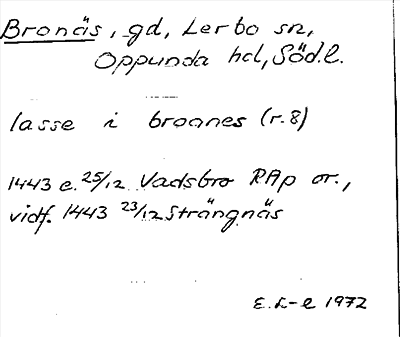 Bronäs, gd, Lerbo sn,
Oppunda hd, Söd.l.
lasse i broanes (r.8)
1443 e. 25/12 Vadsbro RAp or.,
vidf. 1443 23/12 Strängnäs
E. L-e 1972